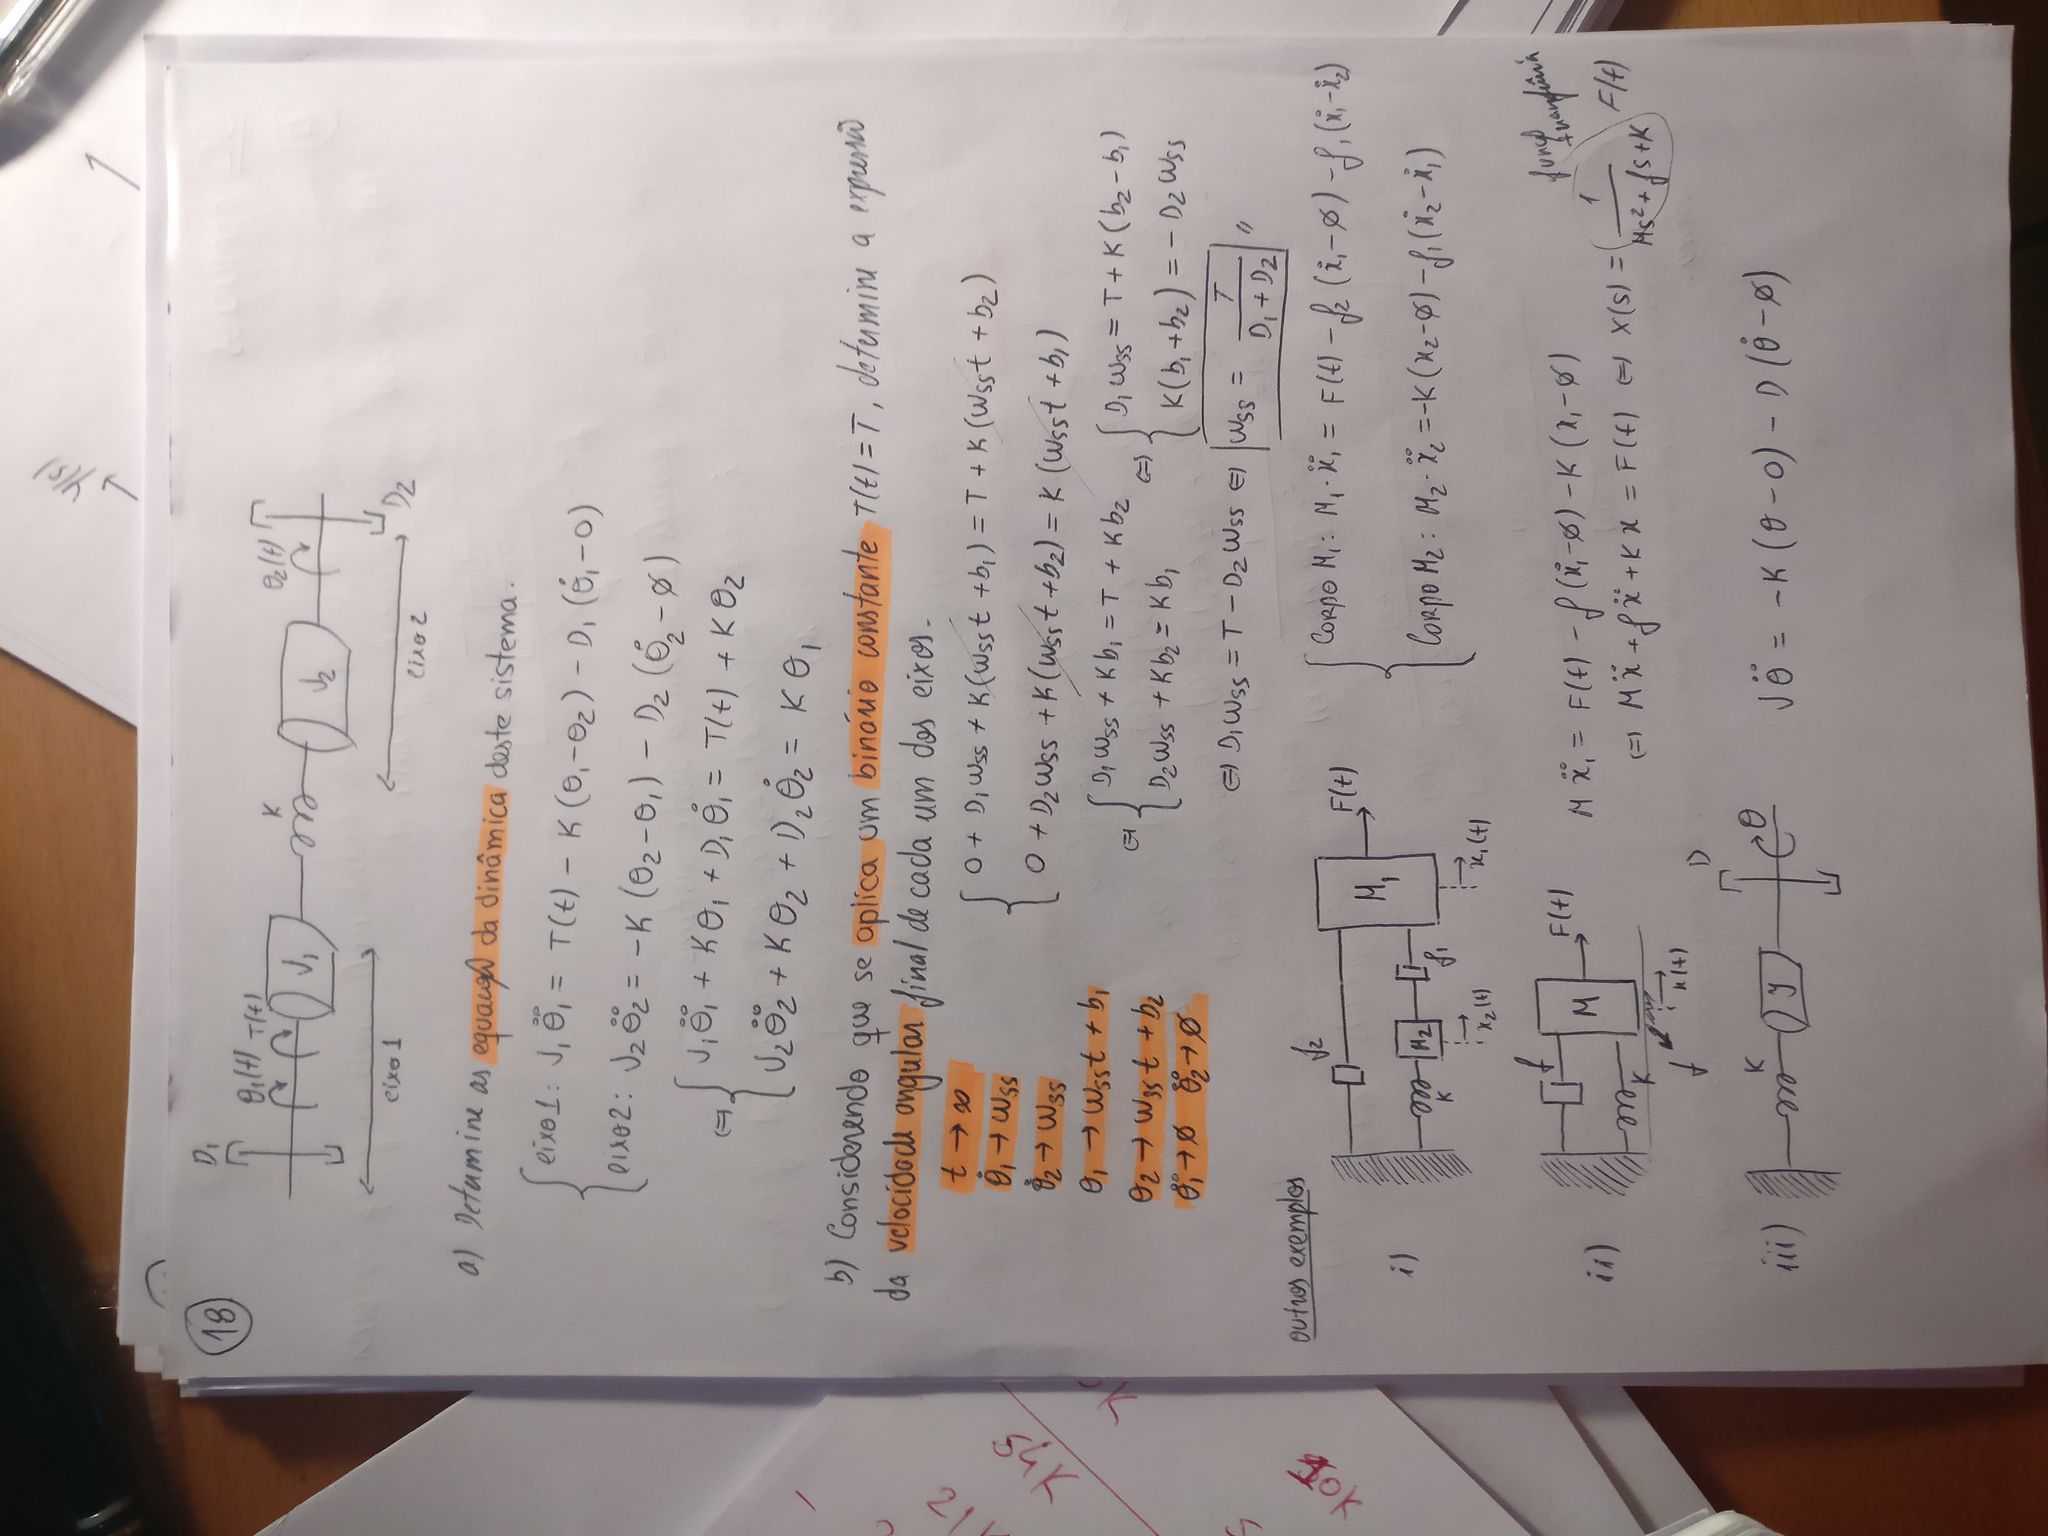 → Y(s)
18
D₁
θ₁(t) T(t)
J₁
K
J₂
θ₂(t)
D₂
eixo 1
eixo 2
a) Determine as equações da dinâmica deste sistema.
eixo 1: J₁θ̈₁ = T(t) - K(θ₁-θ₂) - D₁(θ̇₁-0)
eixo 2: J₂θ̈₂ = -K(θ₂-θ₁) - D₂(θ̇₂-∅)
⇔ J₁θ̈₁ + Kθ₁ + D₁θ̇₁ = T(t) + Kθ₂
J₂θ̈₂ + Kθ₂ + D₂θ̇₂ = Kθ₁
b) Considerendo que se aplica um binário constante T(t) = T, determine a expressão
da velocidade angular final de cada um dos eixos.
t → ∞
θ̇₁ → ωss
θ̇₂ → ωss
θ₁ → ωss t + b₁
θ₂ → ωss t + b₂
θ̈₁ → ∅ θ̈₂ → ∅
0 + D₁ωss + K(ωss t + b₁) = T + K(ωss t + b₂)
0 + D₂ωss + K(ωss t + b₂) = K(ωss t + b₁)
⇔ D₁ωss + Kb₁ = T + Kb₂ ⇔ D₁ωss = T + K(b₂-b₁)
D₂ωss + Kb₂ = Kb₁ K(b₁+b₂) = -D₂ωss
⇔ D₁ωss = T - D₂ωss ⇔ ωss = T / (D₁ + D₂) //
outros exemplos
i)
f₂
M₁
F(t)
K
M₂
f₁
x₂(t)
x₁(t)
Corpo M₁: M₁·ẍ₁ = F(t) - f₂(ẋ₁-∅) - f₁(ẋ₁-ẋ₂)
Corpo M₂: M₂·ẍ₂ = -K(x₂-∅) - f₁(ẋ₂-ẋ₁)
ii)
f
M
F(t)
K
x(t)
f
Mẍ₁ = F(t) - f(ẋ₁-∅) - K(x₁-∅)
⇔ Mẍ + fẍ + Kx = F(t) ⇔ X(s) = 1 / (Ms² + fs + K) F(t)
iii)
K
J
D
θ
Jθ̈ = -K(θ-0) - D(θ̇-∅)
54K